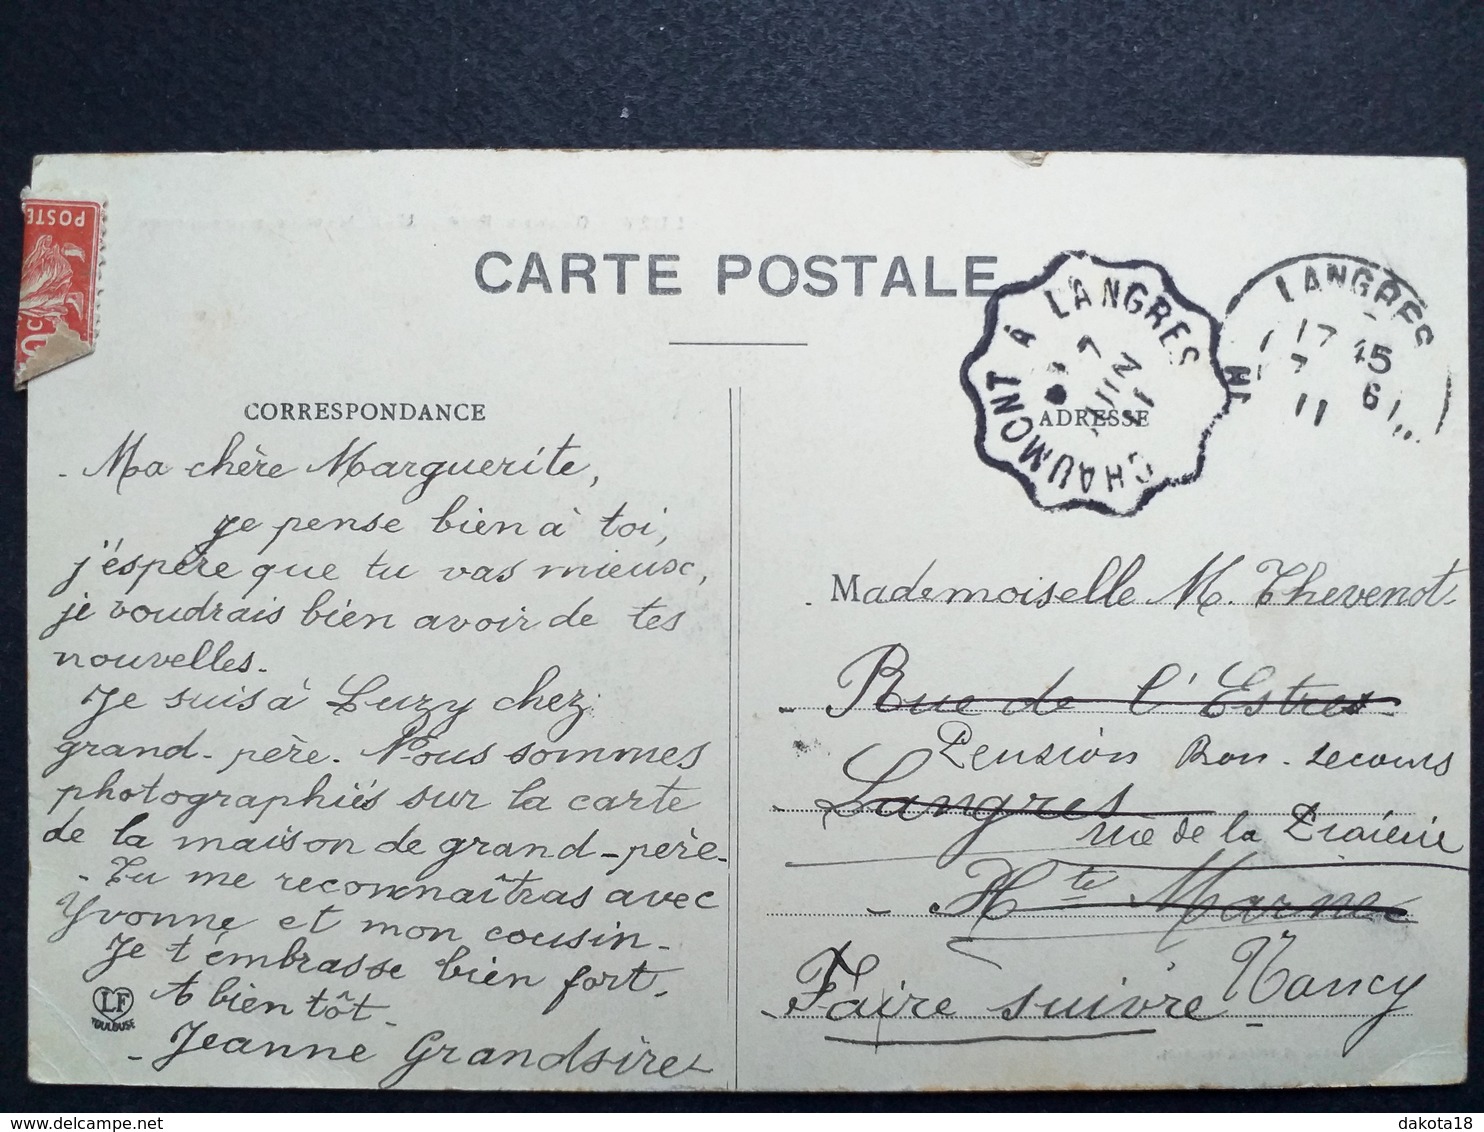 POSTES
CARTE POSTALE
CHAUMONT À LANGRES
7
JUIN
11
LANGRES
17 45
7 6
11
CORRESPONDANCE
ADRESSE
- Ma chère Marguerite,
je pense bien à toi,
j'éspère que tu vas mieux,
je voudrais bien avoir de tes
nouvelles.
Je suis à Luzy chez
grand-père. Nous sommes
photographiés sur la carte
de la maison de grand-père.
- Tu me reconnaîtras avec
Yvonne et mon cousin.
Je t'embrasse bien fort.
A bientôt.
- Jeanne Grandsire
LF
TOULOUSE
Mademoiselle M. Thevenot.
- Rue de l'Estres
Pension Bon-Secours
- Langres
rue de la
- Hte Marne
- Faire suivre Nancy
delcampe.net
dakota18